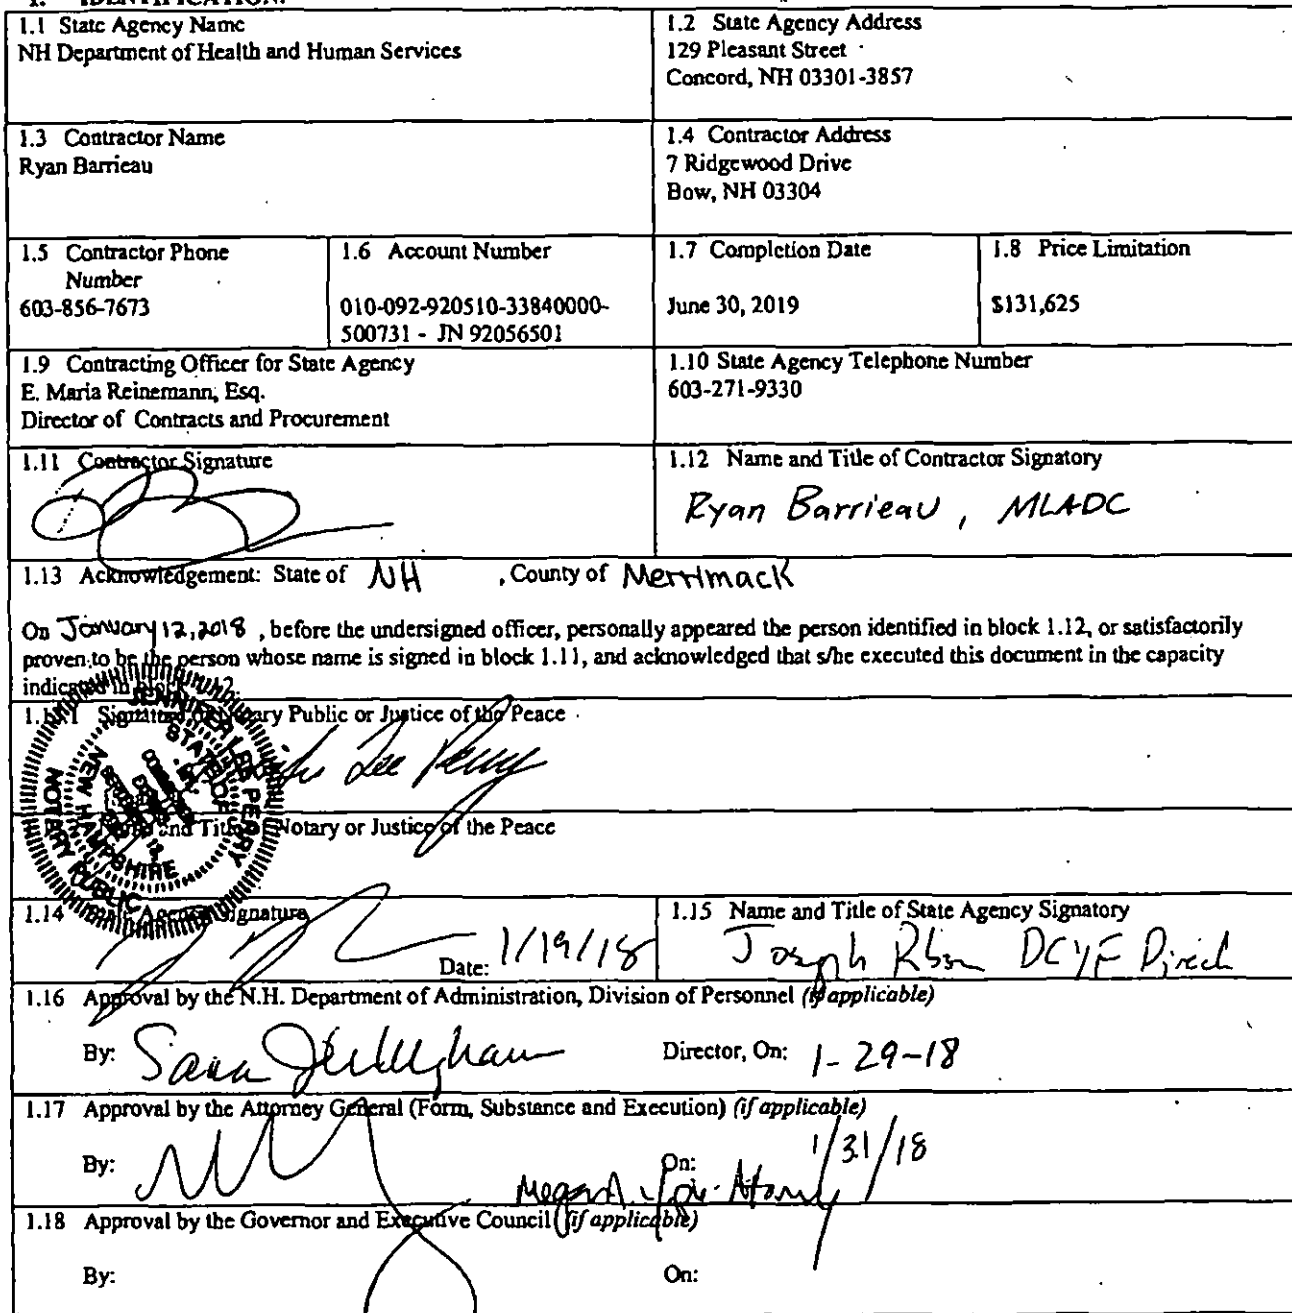 1. IDENTIFICATION.
1.1 State Agency Name
NH Department of Health and Human Services
1.2 State Agency Address
129 Pleasant Street
Concord, NH 03301-3857
1.3 Contractor Name
Ryan Barrieau
1.4 Contractor Address
7 Ridgewood Drive
Bow, NH 03304
1.5 Contractor Phone
Number
603-856-7673
1.6 Account Number
010-092-920510-33840000-
500731 - JN 92056501
1.7 Completion Date
June 30, 2019
1.8 Price Limitation
$131,625
1.9 Contracting Officer for State Agency
E. Maria Reinemann, Esq.
Director of Contracts and Procurement
1.10 State Agency Telephone Number
603-271-9330
1.11 Contractor Signature
1.12 Name and Title of Contractor Signatory
Ryan Barrieau, MLADC
1.13 Acknowledgement: State of NH , County of Merrimack
On January 12, 2018 , before the undersigned officer, personally appeared the person identified in block 1.12, or satisfactorily
proven to be the person whose name is signed in block 1.11, and acknowledged that s/he executed this document in the capacity
indicated in block
Signature Notary Public or Justice of the Peace
Lee Perry
JENNIFER LEE PERRY
STATE OF
NEW HAMPSHIRE
NOTARY PUBLIC
and Title Notary or Justice of the Peace
1.14 Agency Signature
Date: 1/19/18
1.15 Name and Title of State Agency Signatory
Joseph DCYF
1.16 Approval by the N.H. Department of Administration, Division of Personnel (if applicable)
By: Director, On: 1-29-18
1.17 Approval by the Attorney General (Form, Substance and Execution) (if applicable)
By: On: 1/31/18
1.18 Approval by the Governor and Executive Council (if applicable)
By: On: